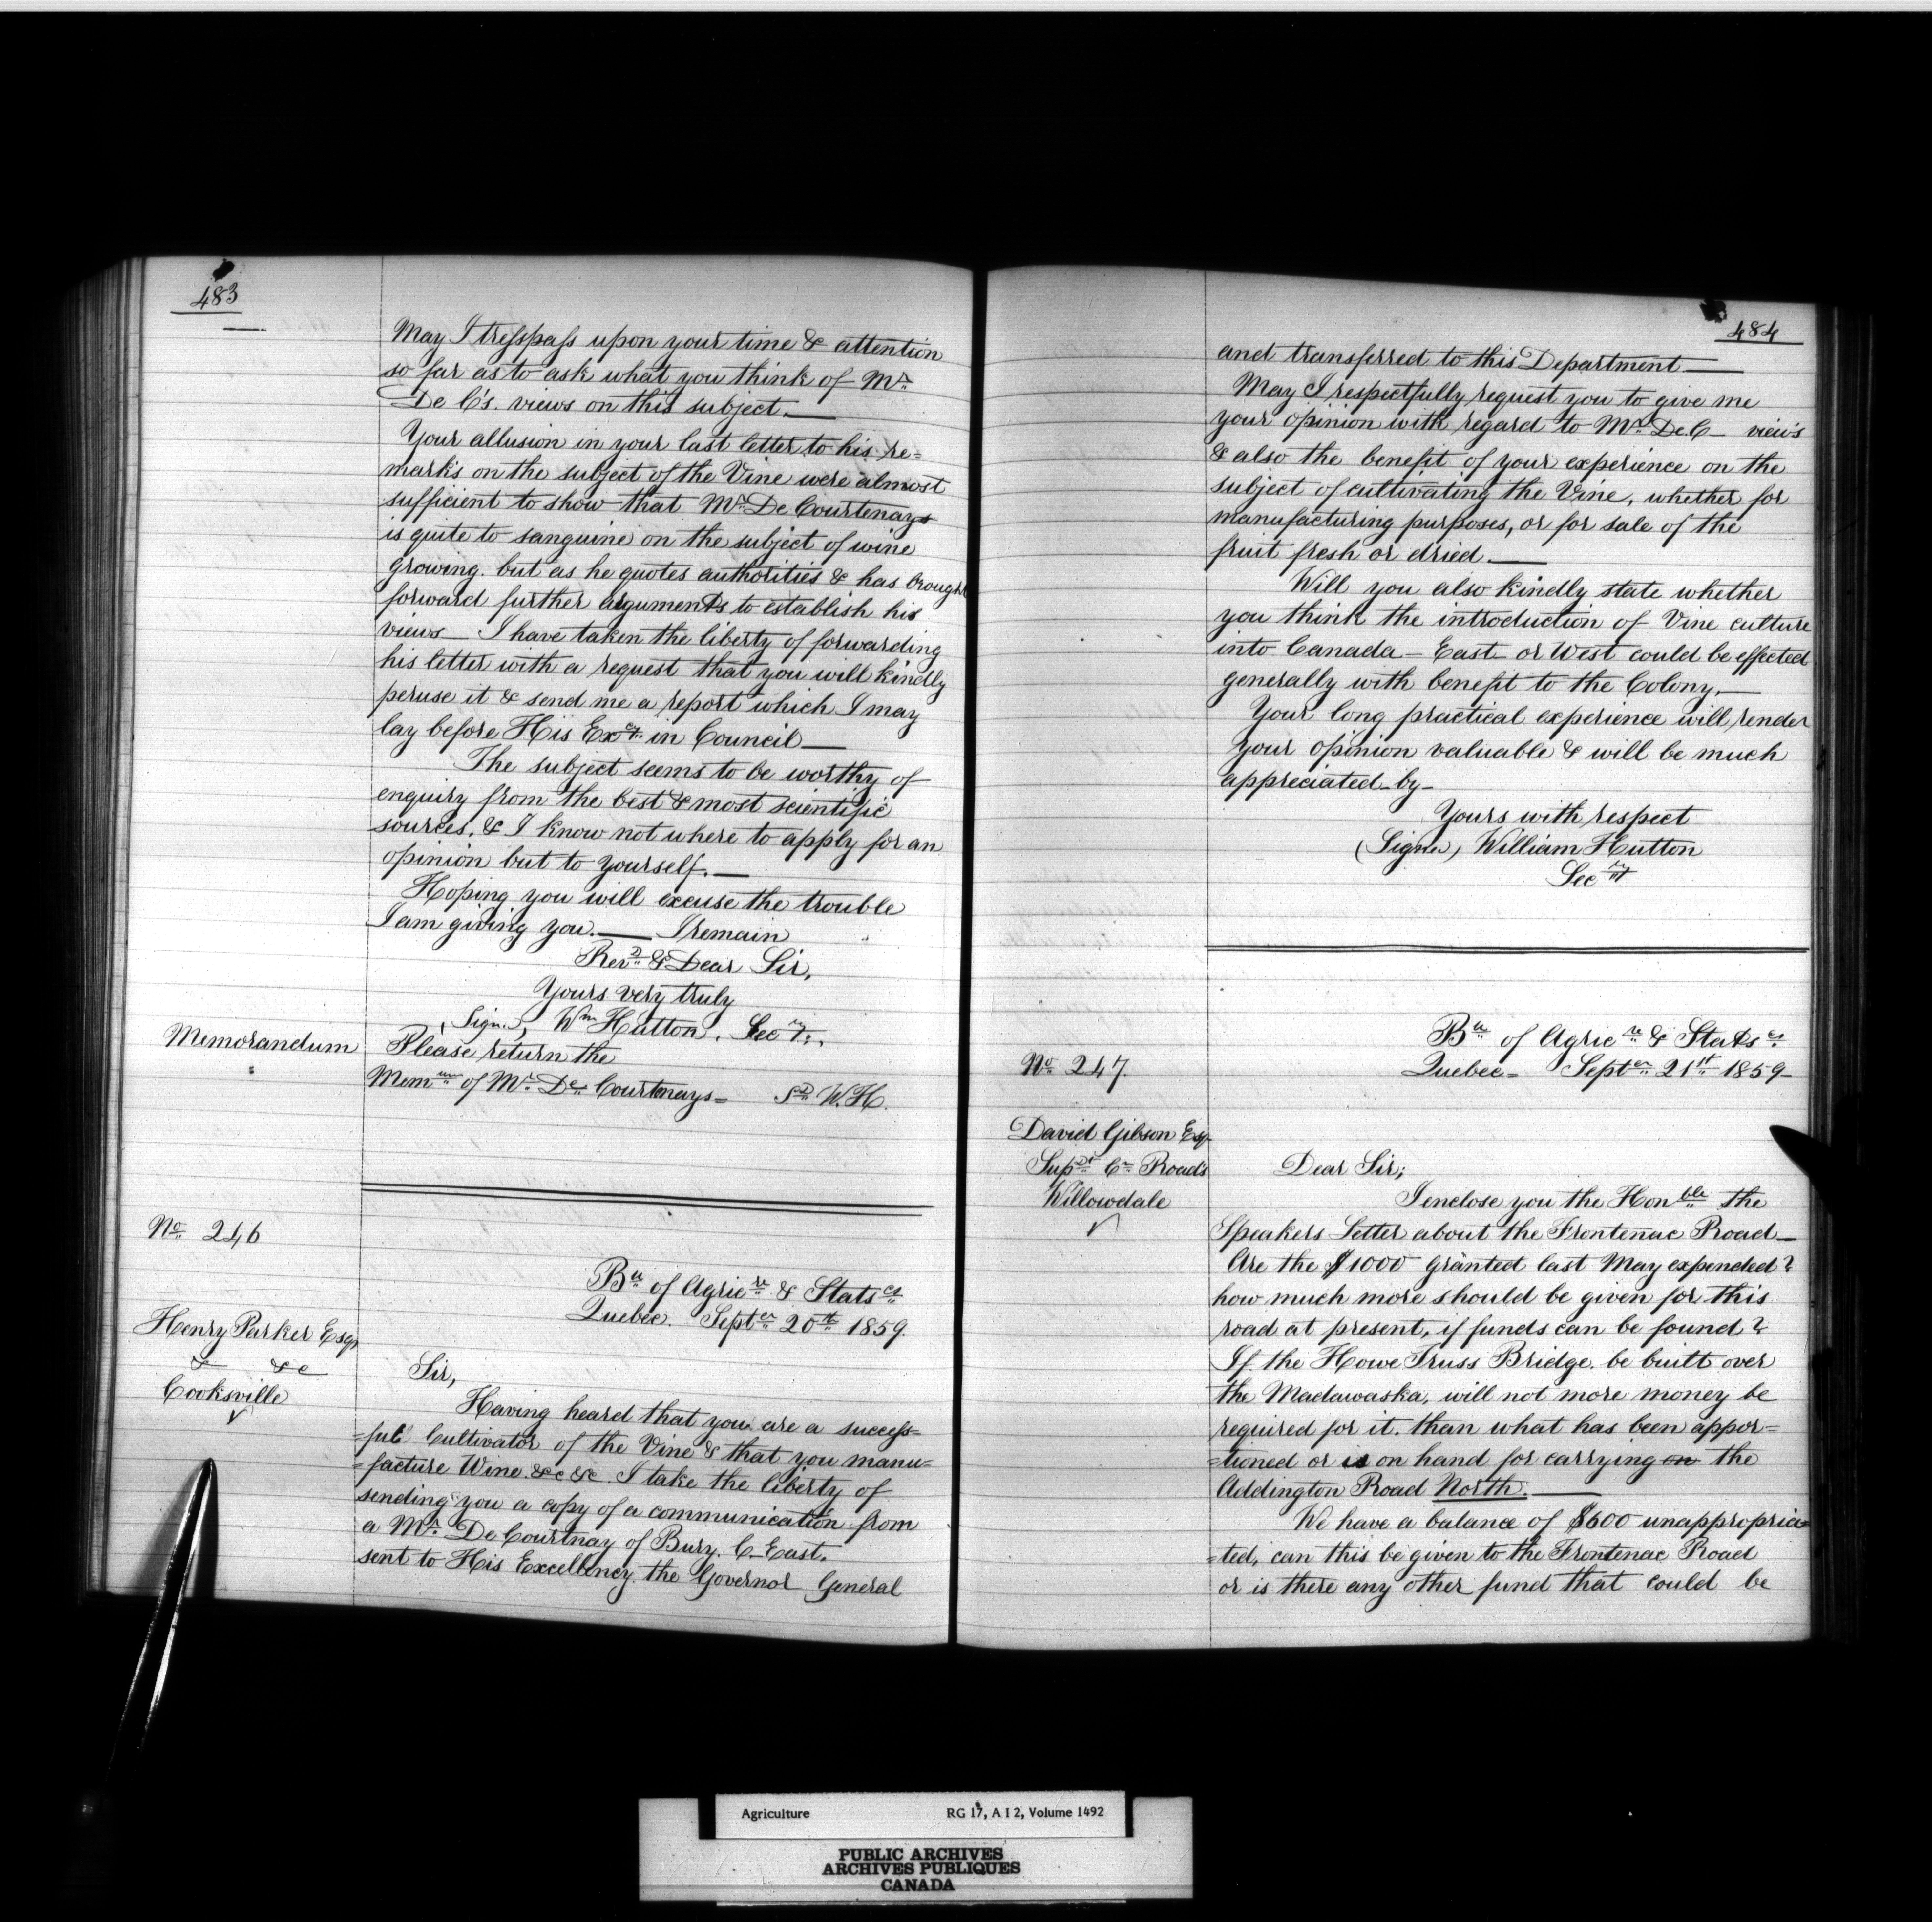 483
May I tresspass upon your time & attention
so far as to ask what you think of Mr
De C's. views on this subject.—
Your allusion in your last letter to his re=
marks on the subject of the Vine were almost
sufficient to show that Mr De Courtenays
is quite to sanguine on the subject of wine
growing. but as he quotes authorities & has brought
forward further arguments to establish his
views — I have taken the liberty of forwarding
his letter with a request that you will kindly
peruse it & send me a report which I may
lay before His Excy in Council —
The subject seems to be worthy of
enquiry from the best & most scientific
sources, & I know not where to apply for an
opinion but to yourself. —
Hoping you will excuse the trouble
I am giving you. — I remain
Revd & Dear Sir,
Yours very truly
(Sign.), Wm Hutton. Secy.
Memorandum
Please return the
Memm of Mr De Courtnays = Sd W.H.
No 246
Bu of Agricre & Statscs
Quebec. Septer 20th 1859.
Henry Parker Esqr
& &c
Cooksville
Sir,
Having heard that you are a success=
=ful Cultivator of the Vine & that you manu=
=facture Wine &c &c. I take the liberty of
sending you a copy of a communication from
a Mr. De Courtnay of Bury. C. East.
sent to His Excellency the Governor General
484
and transferred to this Department —
May I respectfully request you to give me
your opinion with regard to Mr De.C — view's
& also the benefit of your experience on the
subject of cultivating the Vine, whether for
manufacturing purposes, or for sale of the
fruit fresh or dried. —
Will you also kindly state whether
you think the introduction of Vine culture
into Canada — East or West could be effected
generally with benefit to the Colony. —
Your long practical experience will render
your opinion valuable & will be much
appreciated by —
Yours with respect
(Signed) William Hutton
Secry
No 247.
Bu of Agricre & Statscs
Quebec = Septer 21st 1859 —
David Gibson Esqr
Supdt Cn Roads
Willowdale
Dear Sir;
I enclose you the Honble the
Speakers Letter about the Frontenac Road —
Are the $1000 granted last May expended?
how much more should be given for this
road at present, if funds can be found?
If the Howe Truss Bridge be built over
the Madawaska, will not more money be
required for it. than what has been appor=
=tioned or is on hand for carrying on the
Addington Road North. —
We have a balance of $600 unappropria=
=ted, can this be given to the Frontenac Road
or is there any other fund that could be
Agriculture RG 17, A I 2, Volume 1492
PUBLIC ARCHIVES
ARCHIVES PUBLIQUES
CANADA